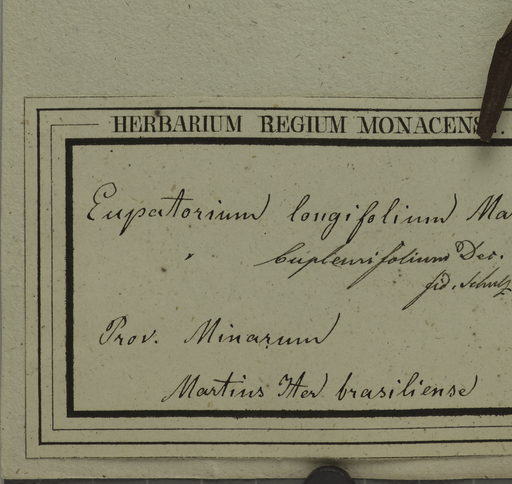 HERBARIUM REGIUM MONACENS
Eupatorium longifolium Ma
" bupleurifolium Dec.
fid. Schultz
Prov. Minarum
Martius Iter brasiliense